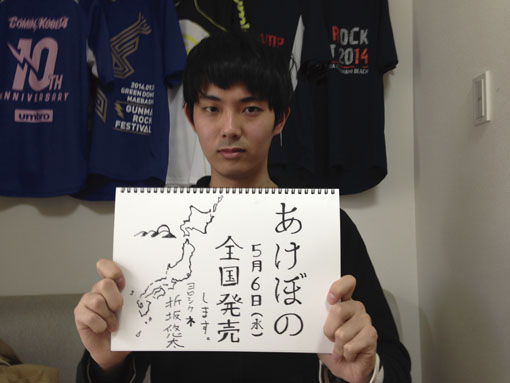 あけぼの
5月6日(水)
全国発売
します。
ヨロシク
折坂悠太
COMIN'KOBE14
10TH
NNIVERSARY
umbro
GREEN DOME
MAEBASHI
GUNMA
ROCK
FESTIVAL
ROCK
2014
BEACH